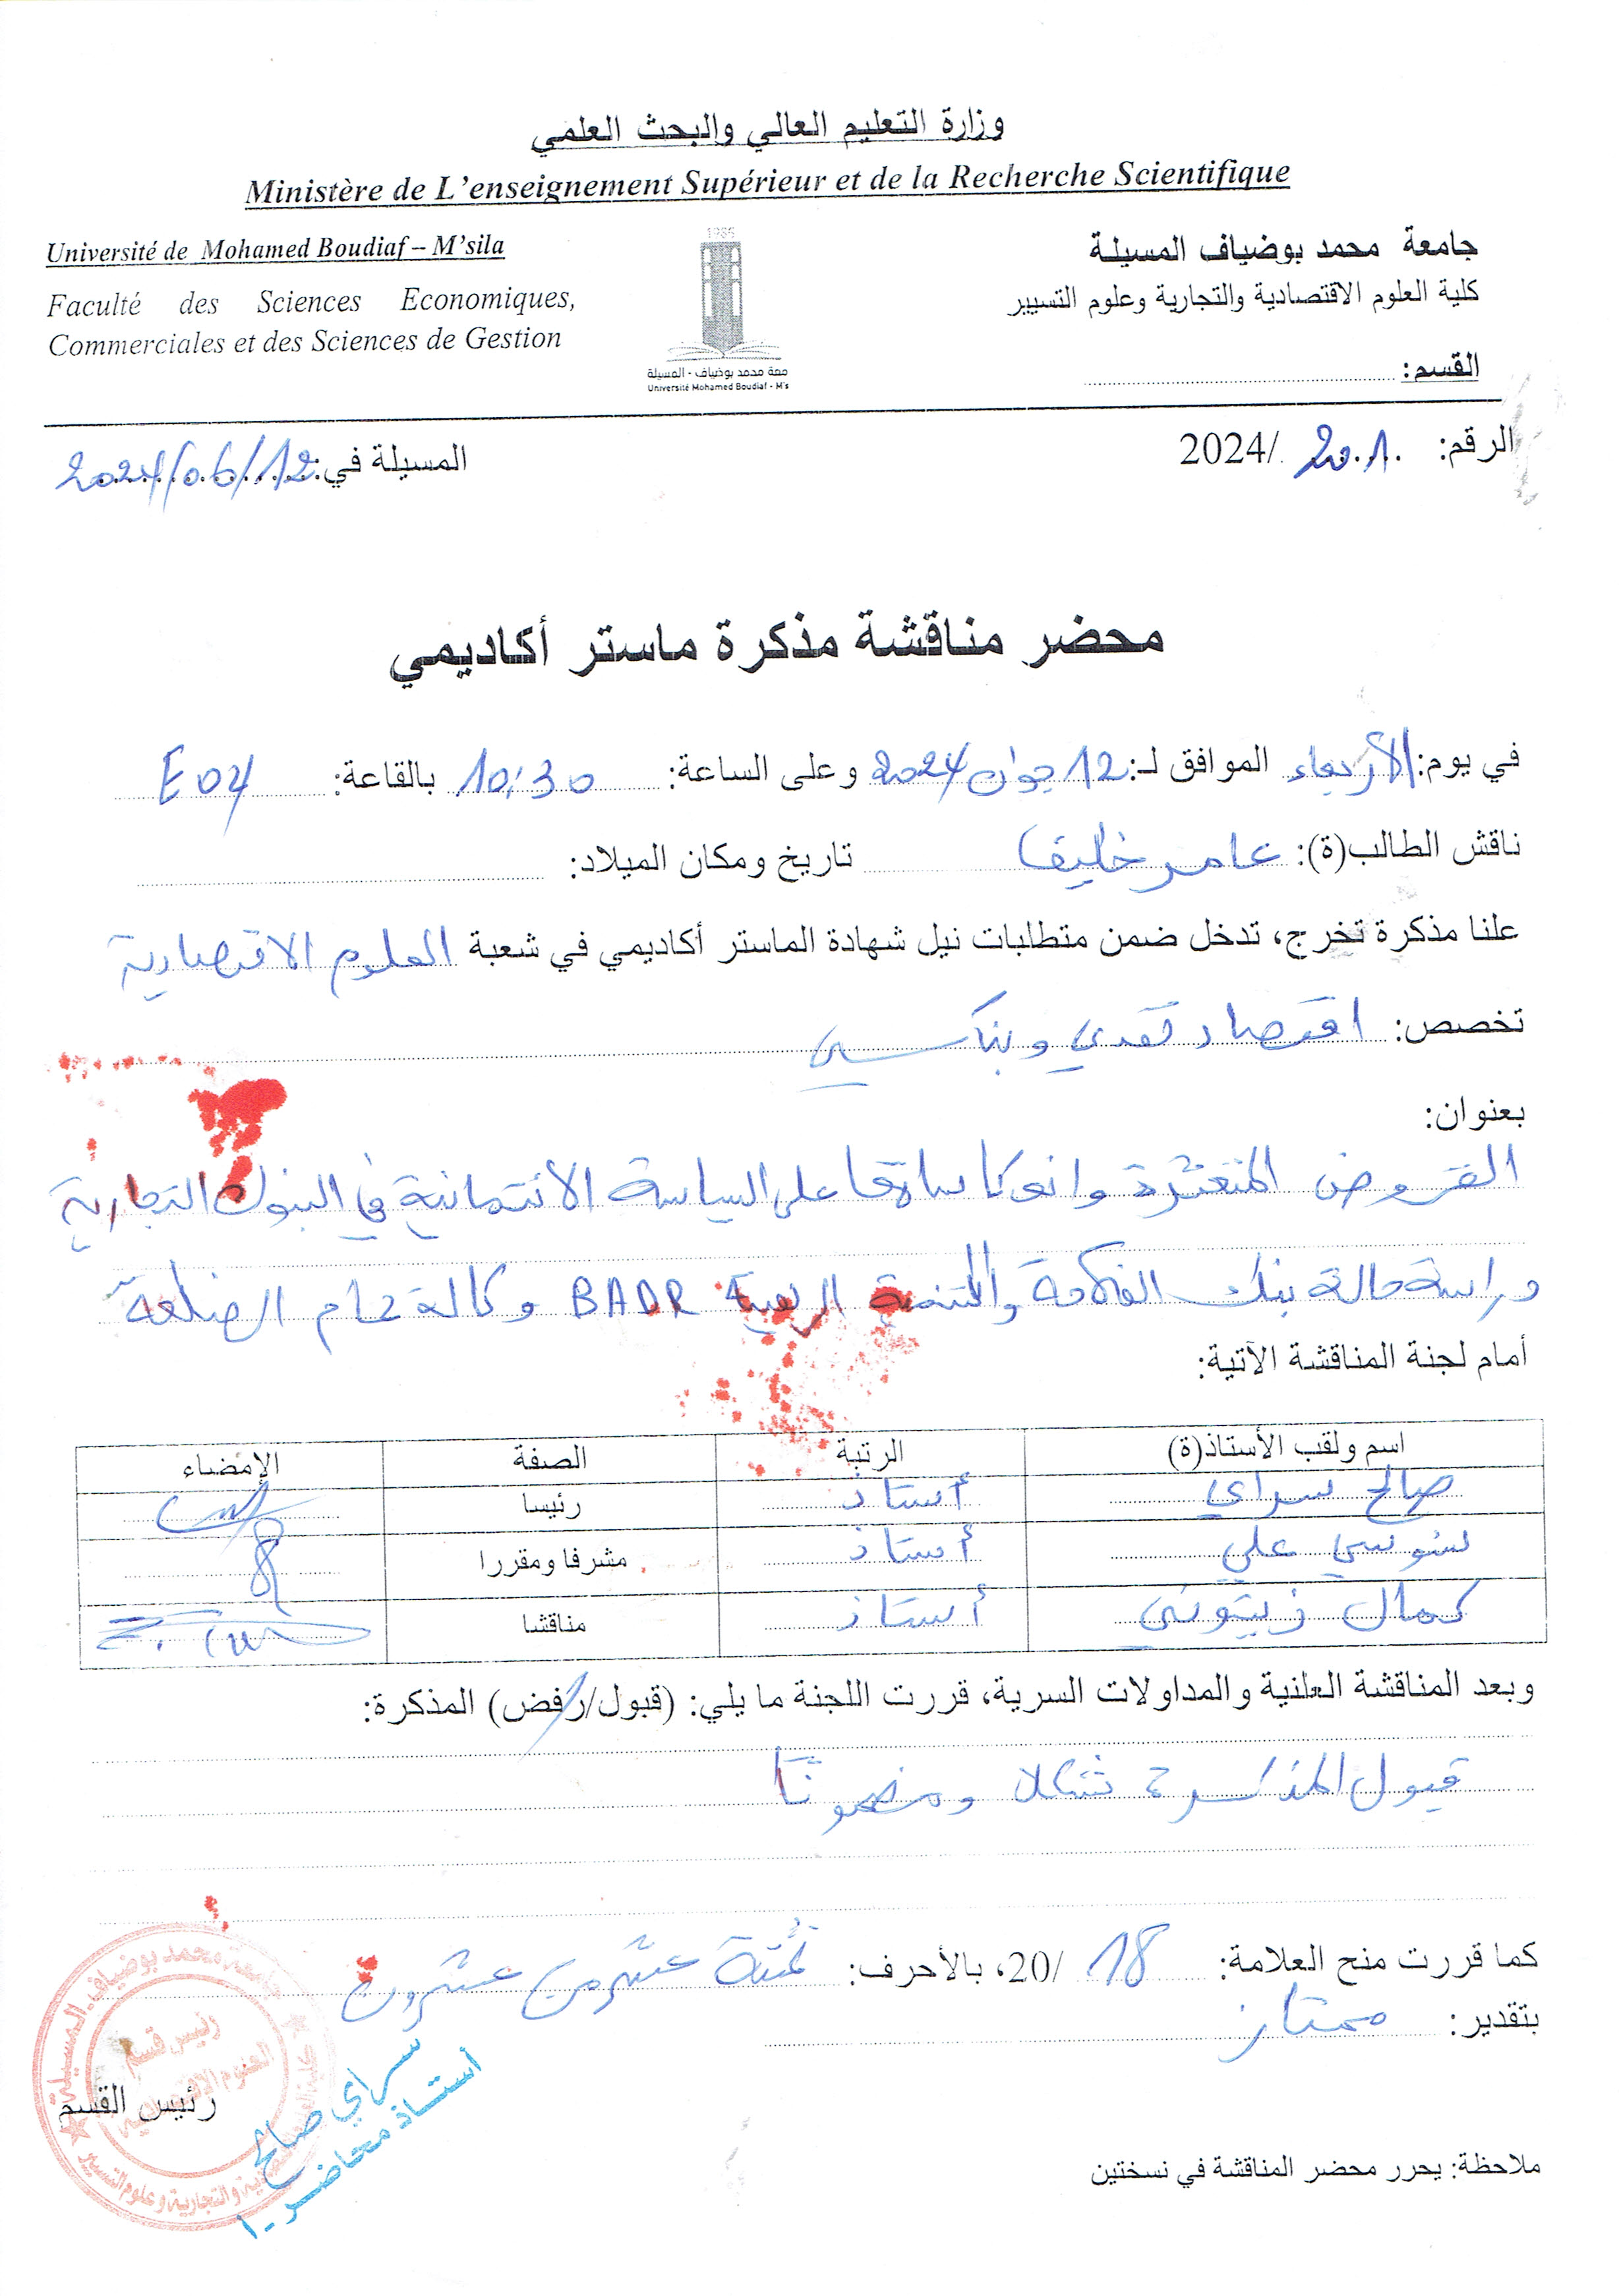 وزارة التعليم العالي والبحث العلمي
Ministère de L'enseignement Supérieur et de la Recherche Scientifique
جامعة محمد بوضياف المسيلة
كلية العلوم الاقتصادية والتجارية وعلوم التسيير
القسم:
Université de Mohamed Boudiaf – M'sila
Faculté des Sciences Economiques,
Commerciales et des Sciences de Gestion
1985
معة محمد بوضياف - المسيلة
Université Mohamed Boudiaf - M's
الرقم: 201 /2024
المسيلة في: 2024/06/12
محضر مناقشة مذكرة ماستر أكاديمي
في يوم: الأربعاء الموافق لـ: 12 جوان 2024 وعلى الساعة: 10:30 بالقاعة: E04
ناقش الطالب(ة): عامر خليفة تاريخ ومكان الميلاد:
علنا مذكرة تخرج، تدخل ضمن متطلبات نيل شهادة الماستر أكاديمي في شعبة العلوم الاقتصادية
تخصص: اقتصاد نقدي وبنكي
بعنوان:
القروض المتعثرة وانعكاساتها على السياسة الائتمانية في البنوك التجارية
دراسة حالة بنك الفلاحة والتنمية الريفية BADR وكالة حمام الضلعة
أمام لجنة المناقشة الآتية:
اسم ولقب الأستاذ(ة) الرتبة الصفة الإمضاء
صالح سراي أستاذ رئيسا
سنوسي علي أستاذ مشرفا ومقررا
كمال زيتوني أستاذ مناقشا
وبعد المناقشة العلنية والمداولات السرية، قررت اللجنة ما يلي: (قبول/رفض) المذكرة:
قبول المذكرة شكلا ومضمونا
كما قررت منح العلامة: 18 /20، بالأحرف: ثمنية عشر من عشرون
بتقدير: ممتاز
رئيس القسم
جامعة محمد بوضياف المسيلة
رئيس قسم
العلوم الاقتصادية
سراي صالح
أستاذ محاضر -أ
ملاحظة: يحرر محضر المناقشة في نسختين